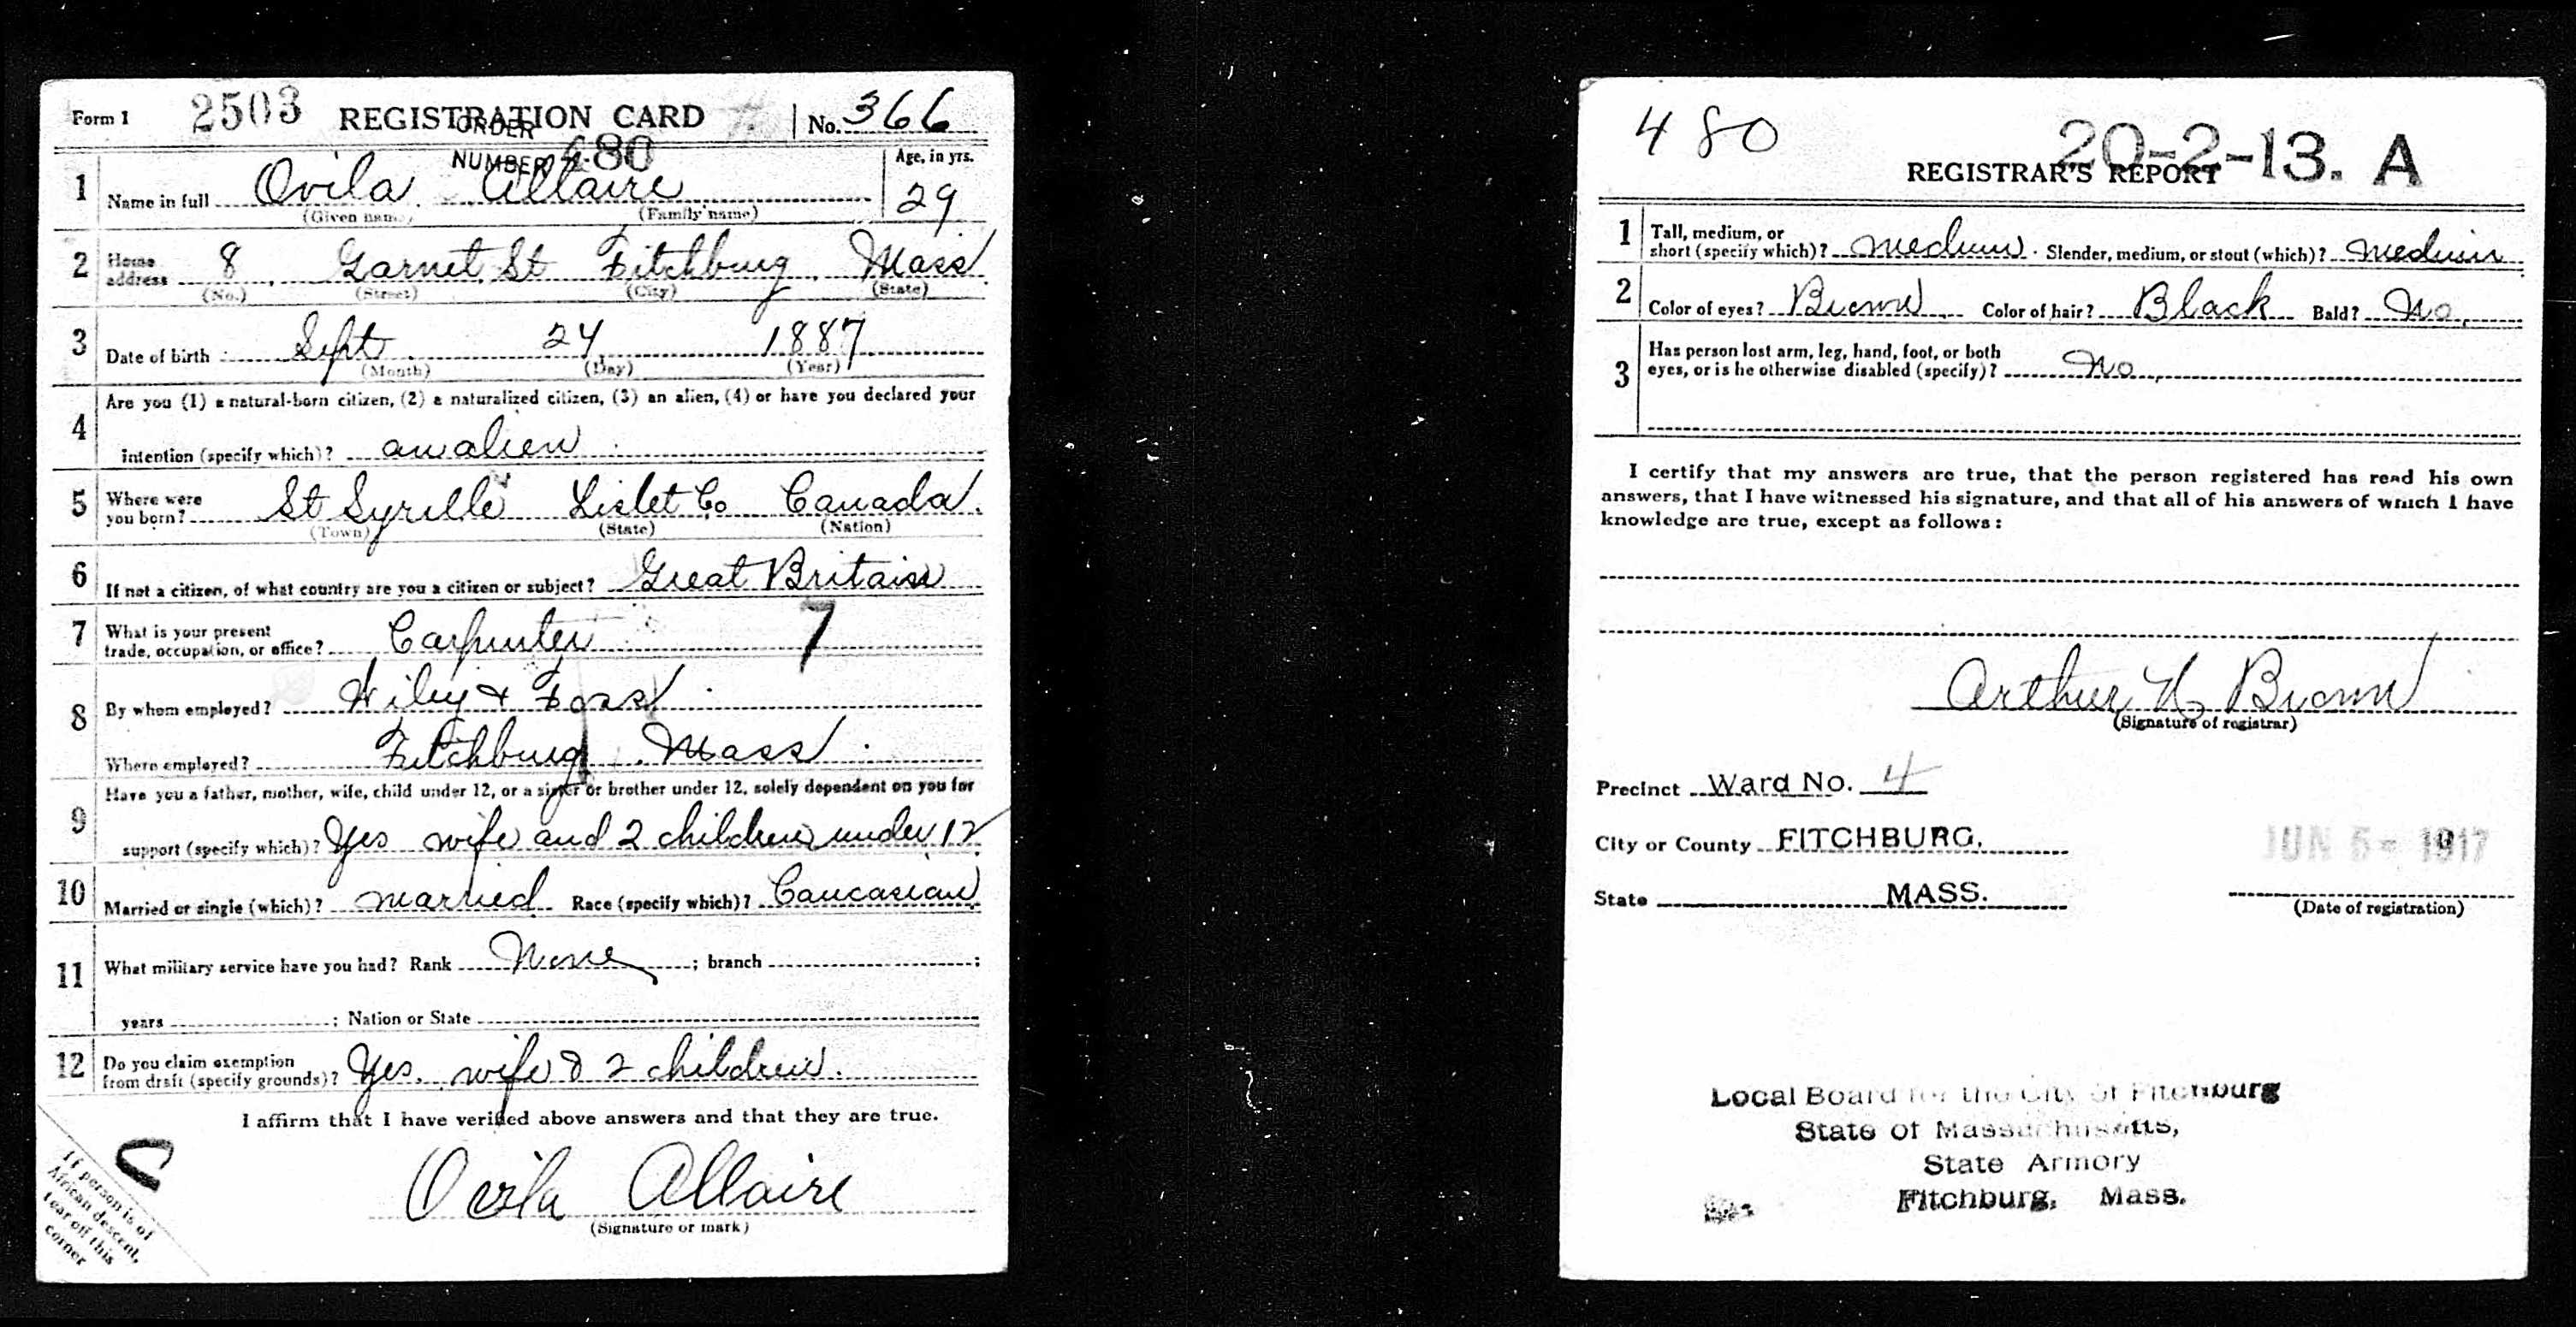 Form 1 2503 REGISTRATION CARD No. 366
ORDER
NUMBER 480
1 Name in full Ovila Allaire Age, in yrs. 29
(Given name) (Family name)
2 Home address 8 Garnet St Fitchburg Mass
(No.) (Street) (City) (State)
3 Date of birth Sept 24 1887
(Month) (Day) (Year)
4 Are you (1) a natural-born citizen, (2) a naturalized citizen, (3) an alien, (4) or have you declared your
intention (specify which)? an alien
5 Where were you born? St Syrille Lislet Co Canada
(Town) (State) (Nation)
6 If not a citizen, of what country are you a citizen or subject? Great Britain
7 What is your present
trade, occupation, or office? Carpenter 7
8 By whom employed? Wiley & Foss
Where employed? Fitchburg Mass
9 Have you a father, mother, wife, child under 12, or a sister or brother under 12, solely dependent on you for
support (specify which)? Yes wife and 2 children under 12
10 Married or single (which)? married Race (specify which)? Caucasian
11 What military service have you had? Rank None ; branch ;
years ; Nation or State
12 Do you claim exemption
from draft (specify grounds)? Yes. wife & 2 children.
I affirm that I have verified above answers and that they are true.
Ovila Allaire
(Signature or mark)
If person is of
African descent,
tear off this
corner
480 20-2-13. A
REGISTRAR'S REPORT
1 Tall, medium, or
short (specify which)? medium Slender, medium, or stout (which)? medium
2 Color of eyes? Brown Color of hair? Black Bald? No
3 Has person lost arm, leg, hand, foot, or both
eyes, or is he otherwise disabled (specify)? No
I certify that my answers are true, that the person registered has read his own
answers, that I have witnessed his signature, and that all of his answers of which I have
knowledge are true, except as follows:
Arthur N Brown
(Signature of registrar)
Precinct Ward No. 4
City or County FITCHBURG. JUN 5 - 1917
State MASS.
(Date of registration)
Local Board for the City of Fitchburg
State of Massachusetts,
State Armory
Fitchburg, Mass.